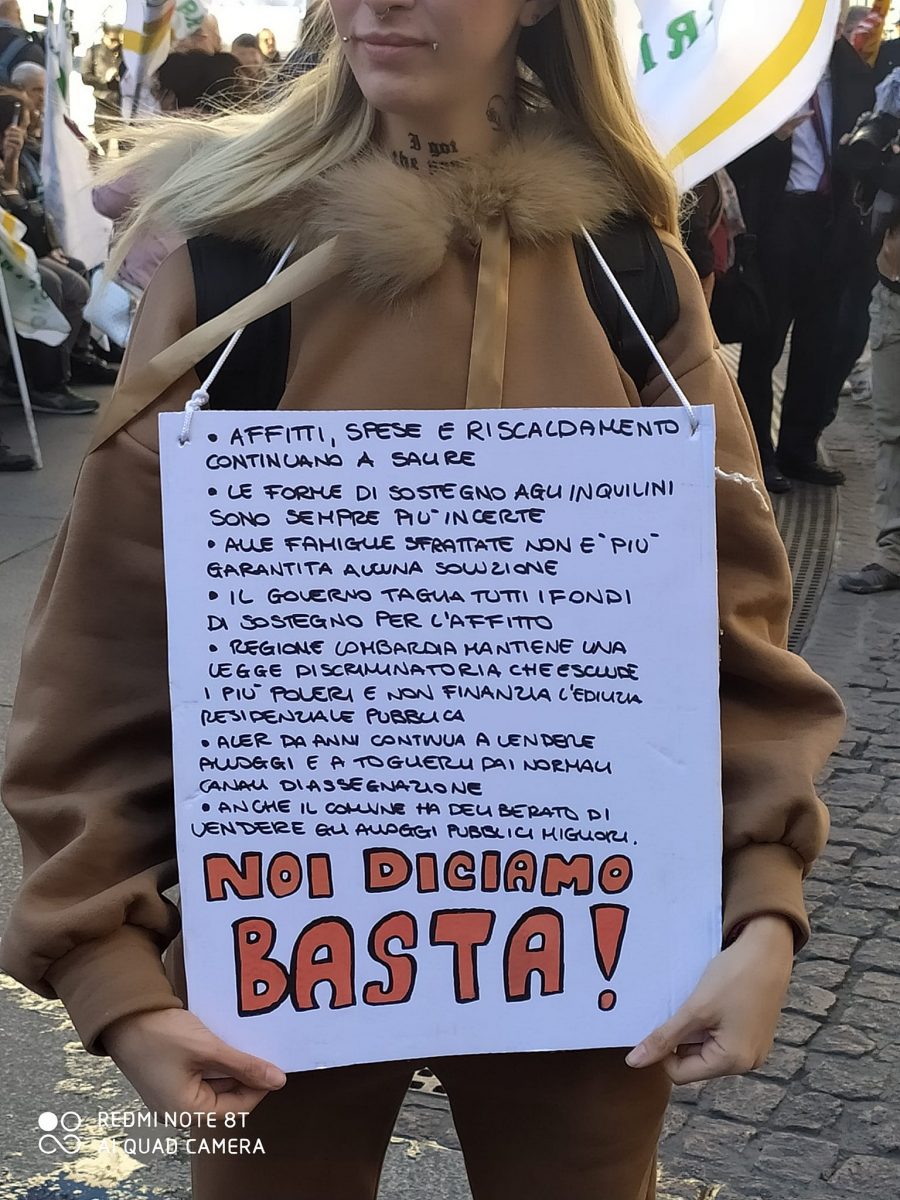 ERI
I got
the
• AFFITTI, SPESE E RISCALDAMENTO
CONTINUANO A SALIRE
• LE FORME DI SOSTEGNO AGLI INQUILINI
SONO SEMPRE PIU' INCERTE
• ALLE FAMIGLIE SFRATTATE NON E' PIU'
GARANTITA ALCUNA SOLUZIONE
• IL GOVERNO TAGLIA TUTTI I FONDI
DI SOSTEGNO PER L'AFFITTO
• REGIONE LOMBARDIA MANTIENE UNA
LEGGE DISCRIMINATORIA CHE ESCLUDE
I PIU' POVERI E NON FINANZIA L'EDILIZIA
RESIDENZIALE PUBBLICA
• ALER DA ANNI CONTINUA A VENDERE
ALLOGGI E A TOGLIERLI DAI NORMALI
CANALI DI ASSEGNAZIONE
• ANCHE IL COMUNE HA DELIBERATO DI
VENDERE GLI ALLOGGI PUBBLICI MIGLIORI.
NOI DICIAMO
BASTA!
REDMI NOTE 8T
AI QUAD CAMERA